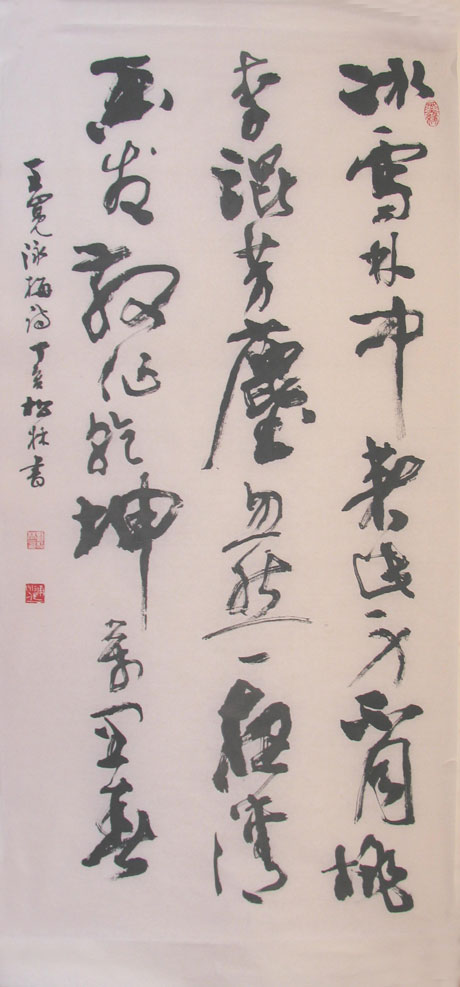 冰雪林中著此身不同桃
李混芳塵忽然一夜清
香發散作乾坤萬里春
王冕詠梅诗丁亥松書